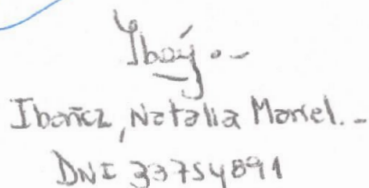 Ibañez, Natalia Marisel.-
DNI 33754891